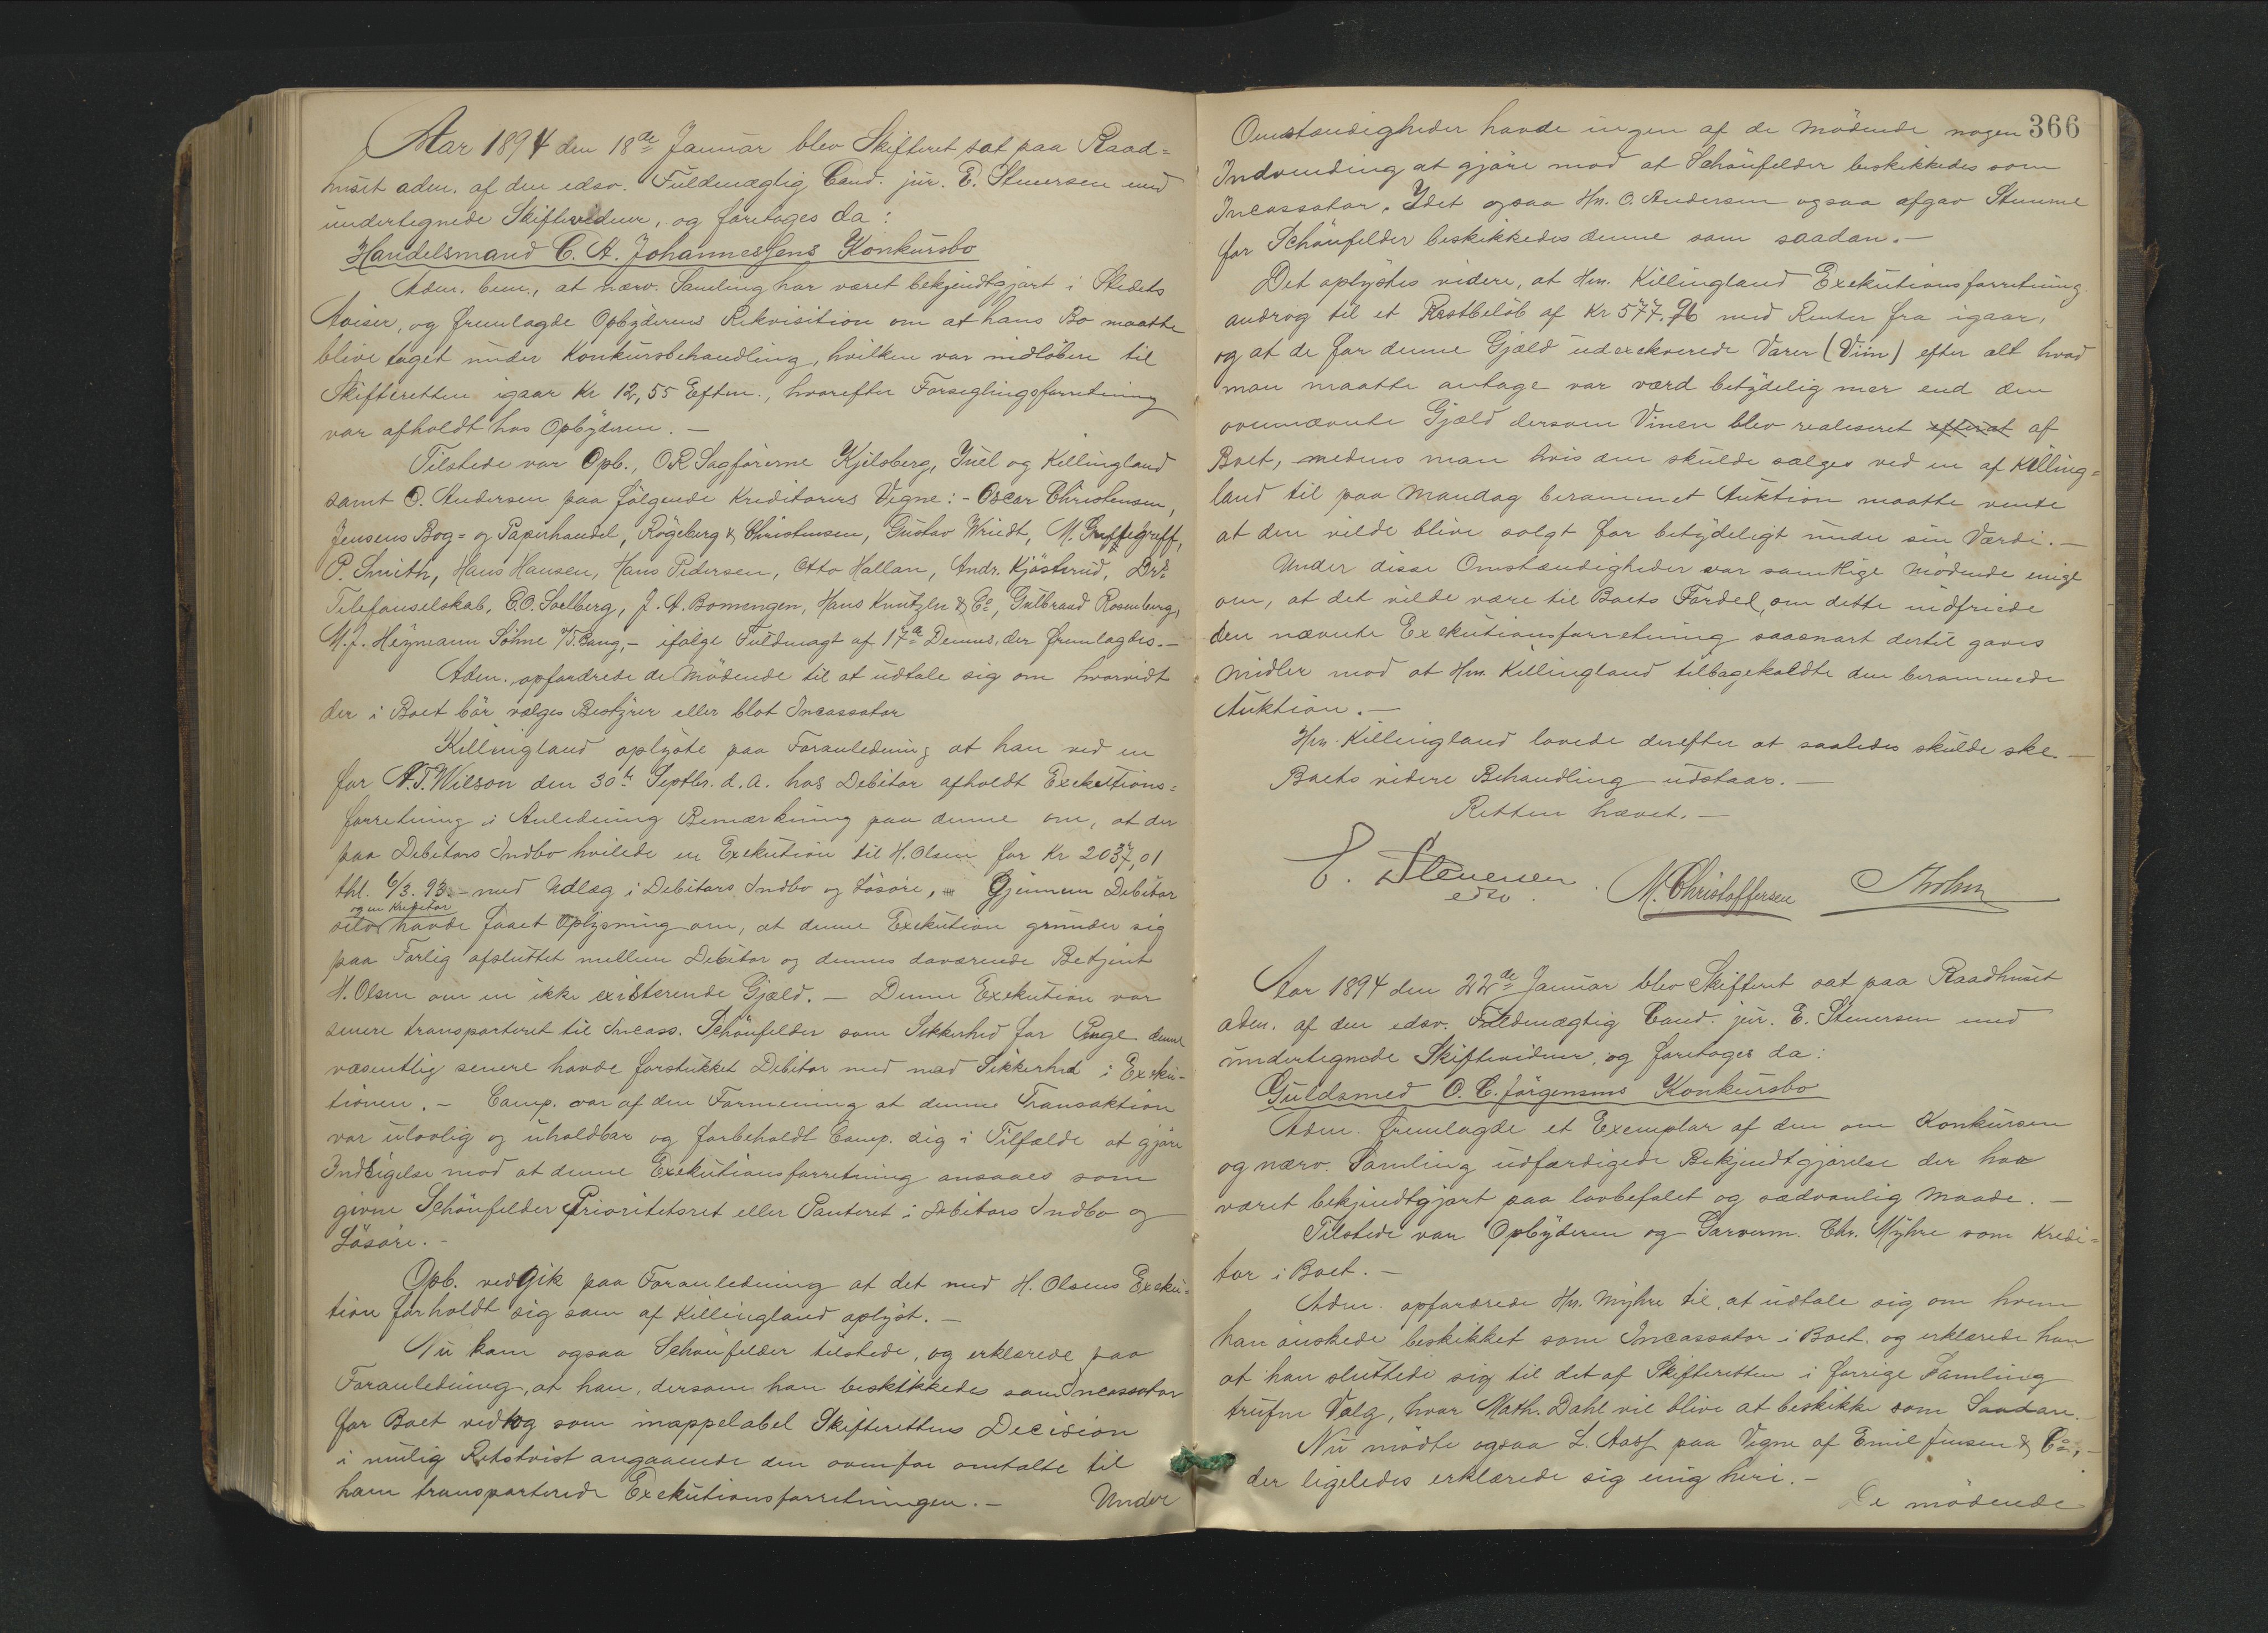 Aar 1894 den 18de Januar blev Skifteret sat paa Raad=
huset adm. af den edsv. Fuldmægtig Cand. jur. E. Stenersen med
undertegnede Skiftevidner, og foretages da:
Handelsmand C. A. Johannessens Konkursbo
Adm. bem., at nærv. Samling har været bekjendtgjort i Stedets
Aviser, og fremlagde Opbyderens Rekvisition om at hans Bo maatte
blive taget under Konkursbehandling, hvilken var indløben til
Skifteretten igaar Kr 12,55 Efterm., hvorefter Forseglingsforretning
var afholdt hos Opbyderen. —
Tilstede var Opb., OR Sagførerne Kjelsberg, Juel og Killingland
samt O. Andersen paa følgende Kreditorers Vegne: - Oscar Christensen,
Jensens Bog= og Papirhandel, Røgeberg & Christensen, Gustav Wriedt, M. Gruffegraff,
P. Smith, Hans Hansen, Hans Pedersen, Otto Hallan, Andr. Kjøsterud, Drs
Telefonselskab, C.O. Solberg, J. A. Bomengen, Hans Knutzen & Co, Gulbrand Rosenberg,
M. J. Heymann Söhne v/T. Bang, - ifølge Fuldmagt af 17de Dennes, der fremlagdes. —
Adm. opfordrede de Mødende til at udtale sig om hvorvidt
der i Boet bør vælges Bestyrer eller blot Incassator
Killingland oplyste paa Foranledning at han ved en
for A. T. Wilson den 30te Septbr. d. A. hos Debitor afholdt Exekutions=
forretning i Anledning Bemærkning paa denne om, at der
paa Debitors Indbo hvilede en Exekution til H. Olsen for Kr 2037,01
thl. 6/3. 93 - med Udlæg i Debitors Indbo og Løsøre, Gjennem Debitor
og en Kreditor
selv havde faaet Oplysning om, at denne Exekution grunder sig
paa Forlig afsluttet mellem Debitor og dennes daværende Betjent
H. Olsen om en ikke existerende Gjæld. — Denne Exekution var
senere transporteret til Incass. Schönfelder som Sikkerhed for Penge denne
væsentlig senere havde forstrukket Debitor med mod Sikkerhed i Exeku-
tionen. — Comp. var af den Formening at denne Transaktion
var ulovlig og uholdbar og forbeholdt Comp. sig i Tilfælde at gjøre
Indsigelse mod at denne Exekutionsforretning ansaaes som
given Schönfelder Prioritetsret eller Panteret i Debitors Indbo og
Løsøre. -
Opb. vedgik paa Foranledning at det med H. Olsens Exeku=
tion forholdt sig som af Killingland oplyst. —
Nu kom ogsaa Schönfelder tilstede, og erklærede paa
Foranledning, at han, dersom han beskikkedes som Incassator
for Boet vedtog som inappelabel Skifterettens Decision
i mulig Retstvist angaaende den ovenfor omtalte til
ham transporterede Exekutionsforretningen. — Under
366
Omstændigheder havde ingen af de Mødende nogen
Indvending at gjøre mod at Schönfelder beskikkedes som
Incassator. Idet ogsaa Hr. O. Andersen ogsaa afgav Stemme
for Schönfelder beskikkedes denne som saadan. —
Det oplystes videre, at Hrr. Killingland Exekutionsforretning
androg til et Restbeløb af Kr 577.96 med Renter fra igaar,
og at de for denne Gjæld udexekverede Varer (Viin) efter alt hvad
man maatte antage var værd betydelig mer end den
ovennævnte Gjæld dersom Vinen blev realiseret efterat af
Boet, medens man hvis den skulde sælges ved en af Killing=
land til paa Mandag berammet Auktion maatte vente
at den vilde blive solgt for betydeligt under sin Værdi. —
Under disse Omstændigheder var samtlige Mødende enige
om, at det vilde være til Boets Fordel, om dette indfriede
den nævnte Exekutionsforretning saasnart dertil gaves
Midler mod at Hrr. Killingland tilbagekaldte den berammede
Auktion. —
Hrr. Killingland lovede derefter at saaledes skulde ske. —
Boets videre Behandling udstaar. —
Retten hævet. —
E. Stenersen
edsv.
M. Christoffersen
Aar 1894 den 22de Januar blev Skifteret sat paa Raadhuset
adm. af den edsv. Fuldmægtig Cand. jur. E. Stenersen med
undertegnede Skiftevidner, og foretages da:
Guldsmed O. C. Jørgensens Konkursbo
Adm. fremlagde et Exemplar af den om Konkursen
og nærv. Samling udfærdigede Bekjendtgjørelse der har
været bekjendtgjort paa lovbefalet og sædvanlig Maade. —
Tilstede var Opbyderen og Garverm. Chr. Myhre som Kredi=
tor i Boet. —
Adm. opfordrede Hr. Myhre til at udtale sig om hvem
han ønskede beskikket som Incassator i Boet og erklærede han
at han sluttede sig til det af Skifteretten i forrige Samling
trufne Valg, hvor Math. Dahl vil blive at beskikke som Saadan. —
Nu mødte ogsaa L. Aass paa Vegne af Emil Jensen & Co, —
der ligeledes erklærede sig enig heri. —
De mødende